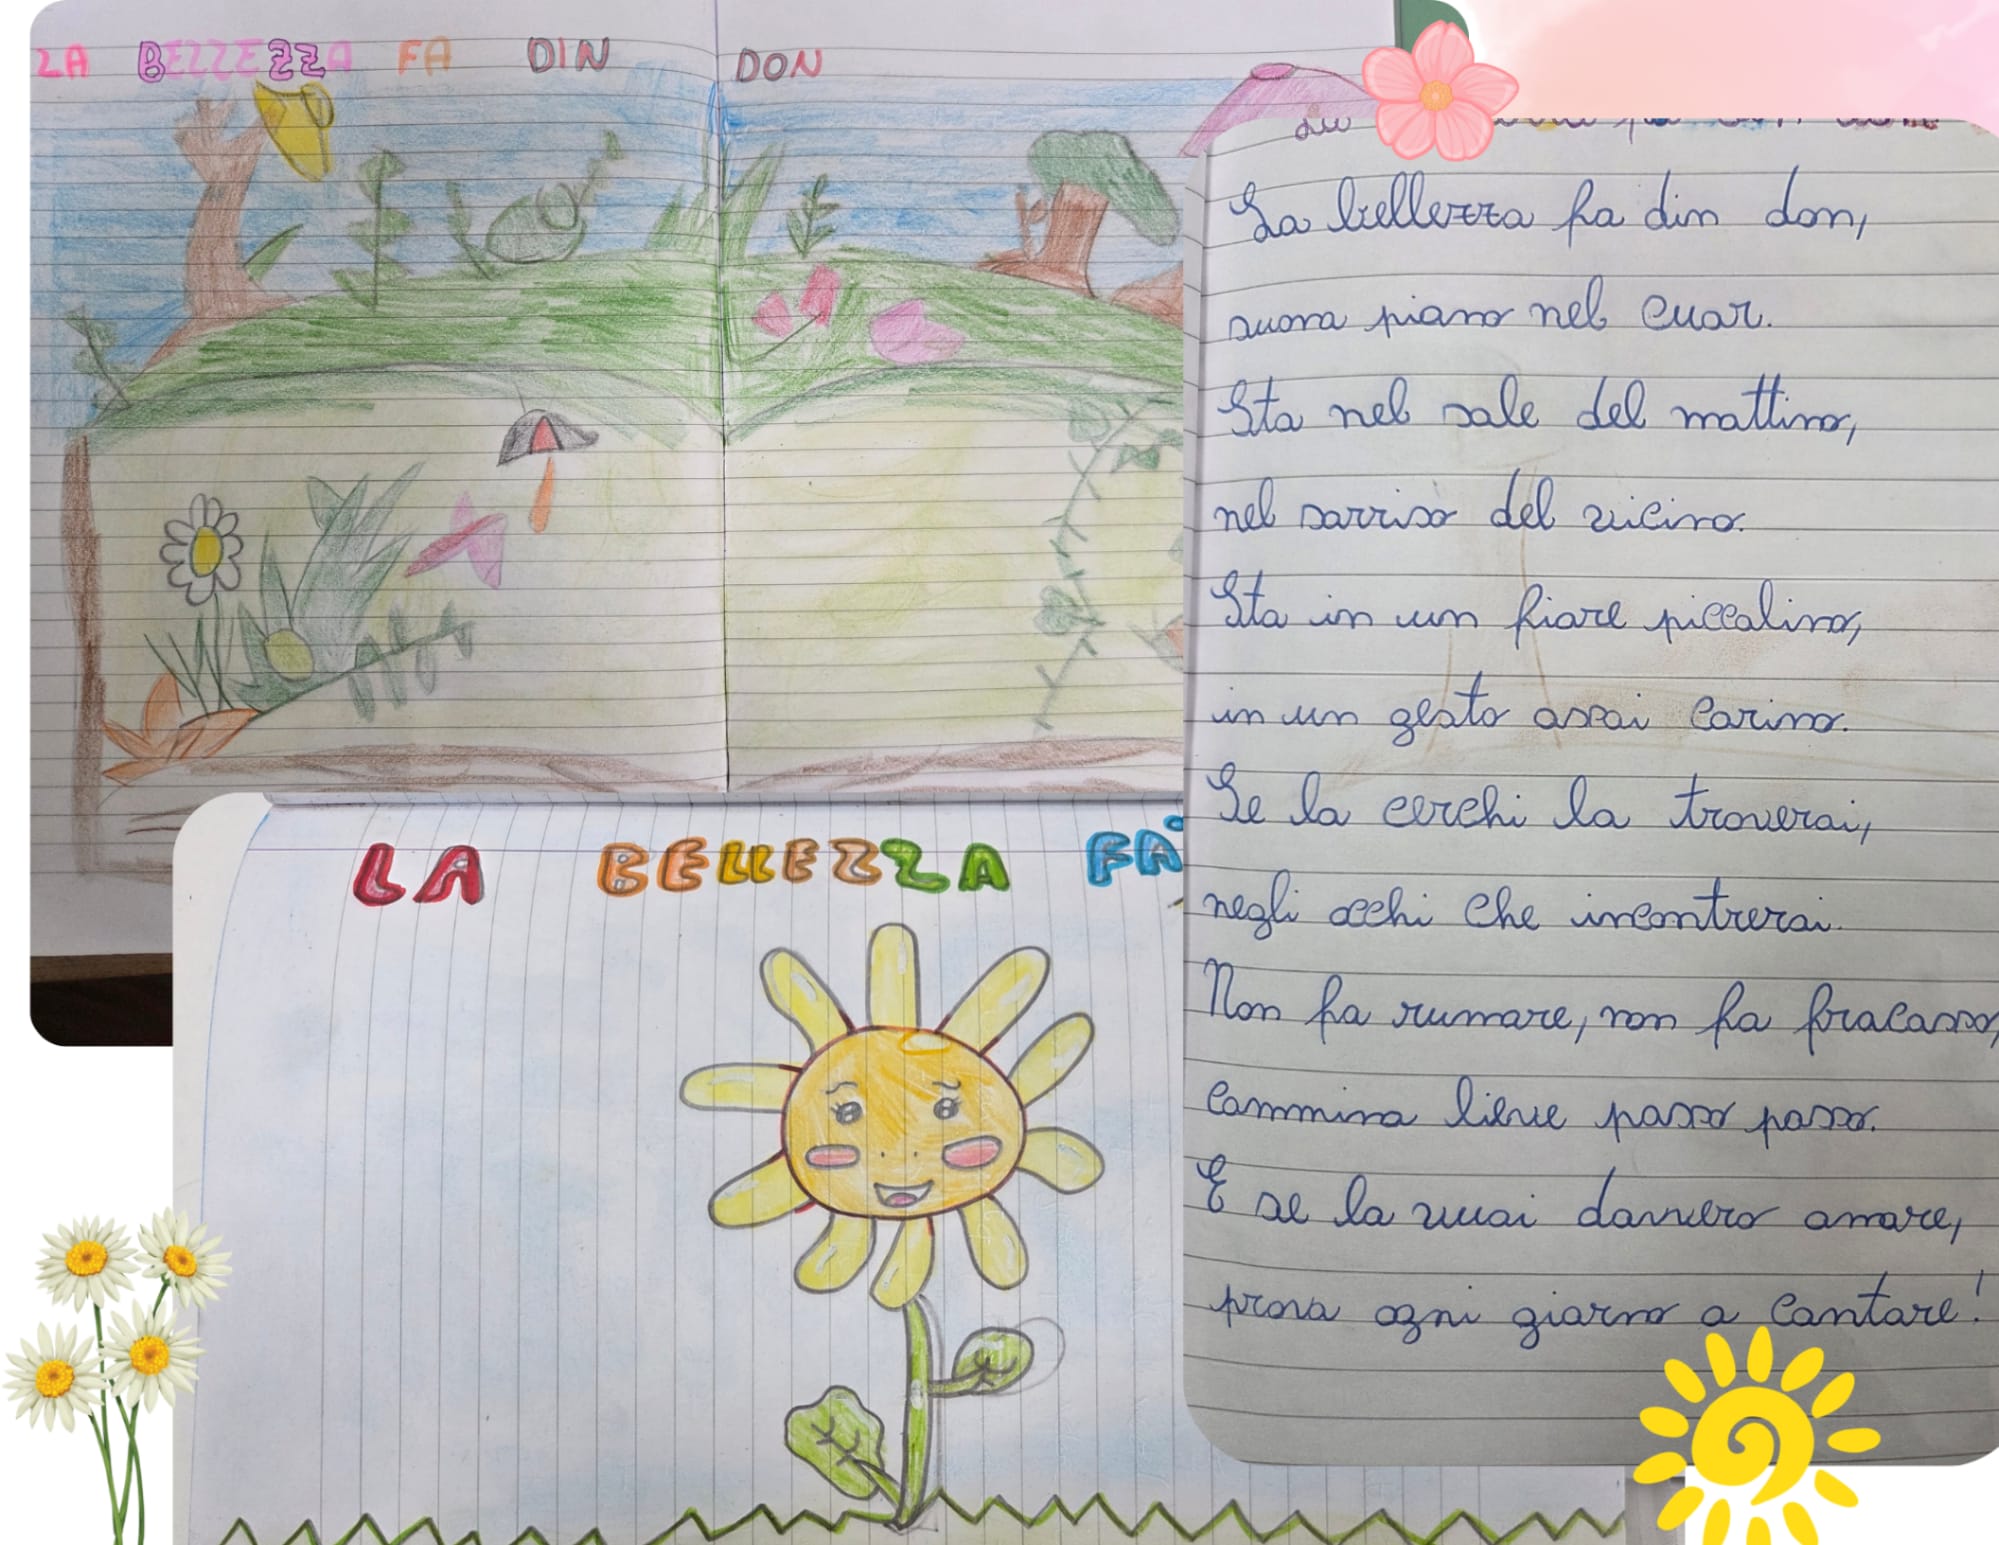 LA BELLEZZA FA DIN DON
La bellezza fa din don,
suona piano nel cuor.
Sta nel sole del mattino,
nel sorriso del vicino.
Sta in un fiore piccolino,
in un gesto assai carino.
Se la cerchi la troverai,
negli occhi che incontrerai.
Non fa rumore, non fa fracasso,
cammina lieve passo passo.
E se la vuoi davvero amare,
prova ogni giorno a cantare!
LA BELLEZZA FA